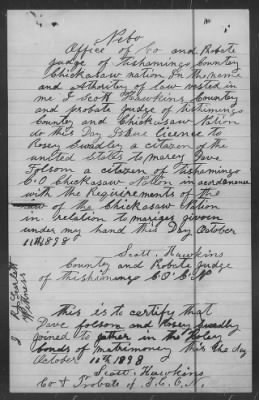 Nebo
Office of Co and Probate
judge of Tishamingo County
Chickasaw nation In the name
and Athority of law vested in
me I Scott Hawkins County
and probate judge of Tishimingo
County and Chickasaw Nation
do this Day Ishue licence to
Rosey Swadley a citazen of the
united States to marey Dave
Folsom a citazen of Tishamingo
C.O Chickasaw Nation in acordance
with the Requirements of the
law of the Chickasaw Nation
in relation to mariges given
under my hand this Day October
11th 1898
Scott Hawkins
County and Probate judge
of Tishamingo C.O. C.N
This is to certify that
Dave folsom and Rosey Swadly
joined to gather in the Holey
bonds of matrimoney this the day
October 11th 1898
Scott Hawkins
Co & Probate J. T.C. C.N.
Witness